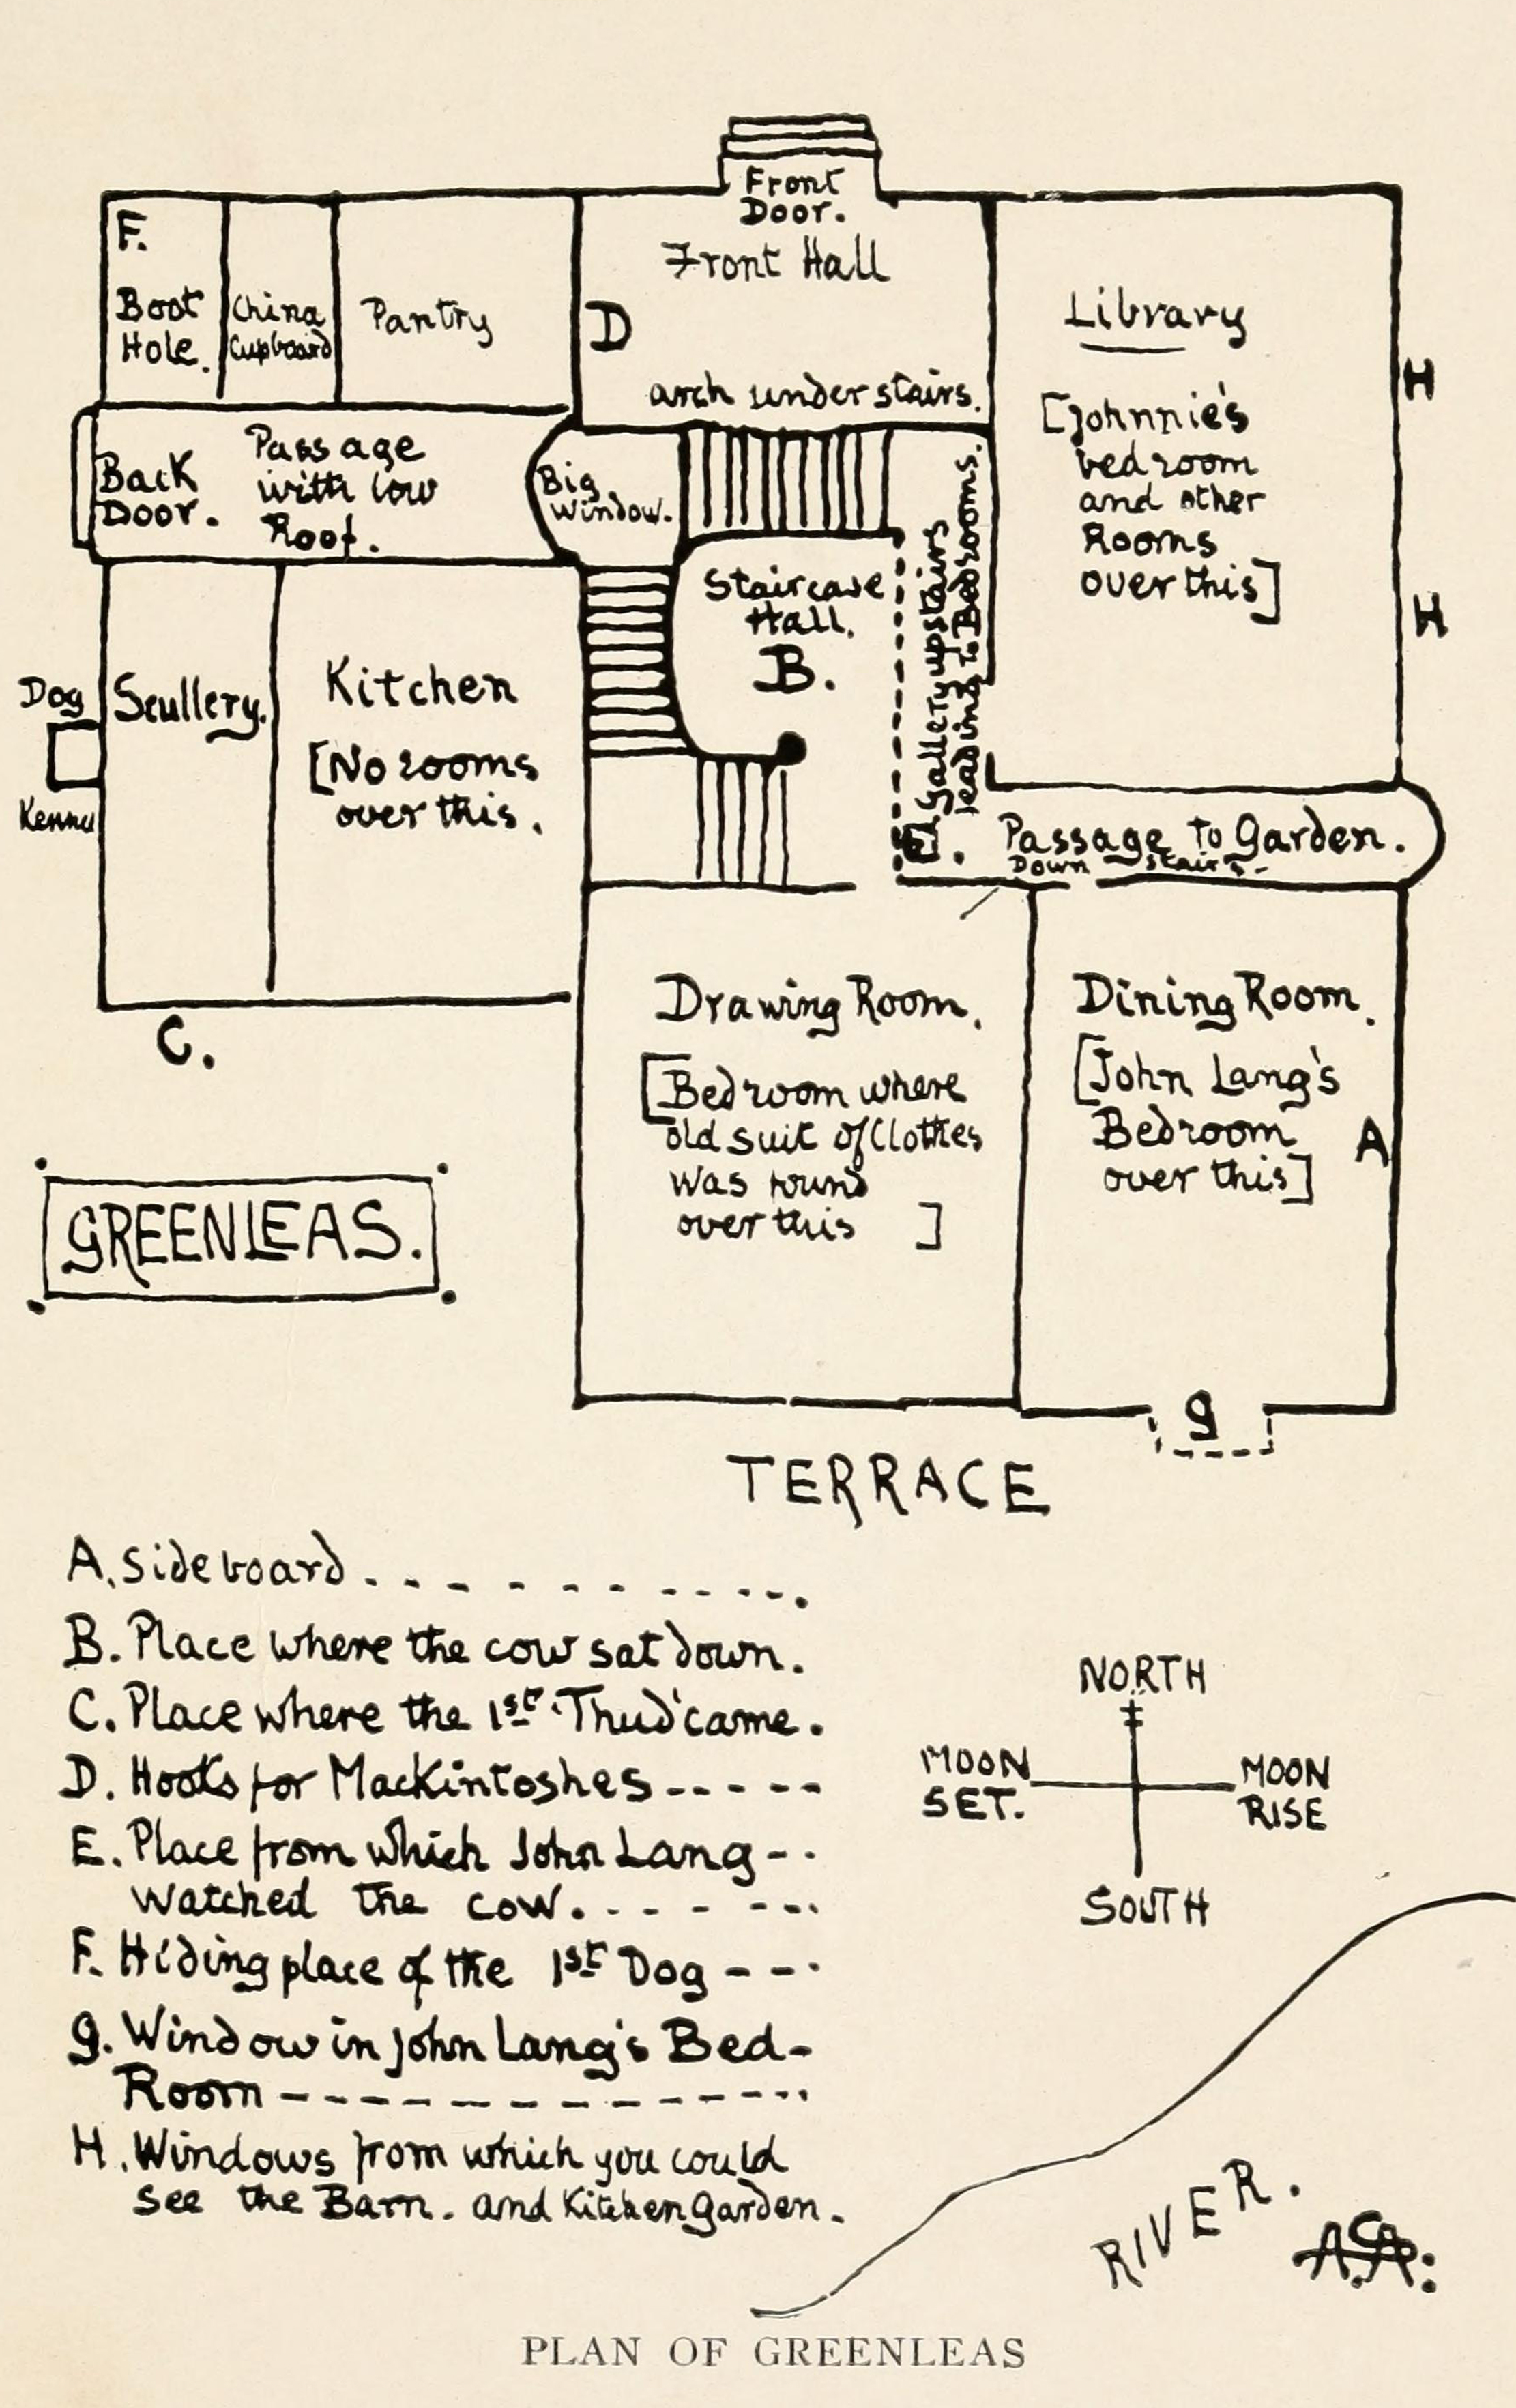 Front
Door.
Front Hall
D
arch under stairs.
F.
Boot
Hole.
China
Cupboard
Pantry
Library
[Johnnie's
bedroom
and other
Rooms
over this]
H
H
Back
Door.
Passage
with low
Roof.
Big
Window.
Staircase
Hall.
B.
Gallery upstairs
leading to Bedrooms.
E.
Dog
Kennel
Scullery.
Kitchen
[No rooms
over this.
Passage to Garden.
Down stairs
C.
Drawing Room.
[Bedroom where
old suit of Clothes
was found
over this ]
Dining Room.
[John Lang's
Bedroom
over this]
A
g
GREENLEAS.
TERRACE
A. Sideboard
B. Place where the cow sat down.
C. Place where the 1st 'Thud' came.
D. Hooks for Mackintoshes
E. Place from which John Lang
watched the cow.
F. Hiding place of the 1st Dog
g. Window in John Lang's Bed-
Room
H. Windows from which you could
see the Barn. and Kitchen garden.
NORTH
MOON
SET.
MOON
RISE
SOUTH
RIVER.
PLAN OF GREENLEAS